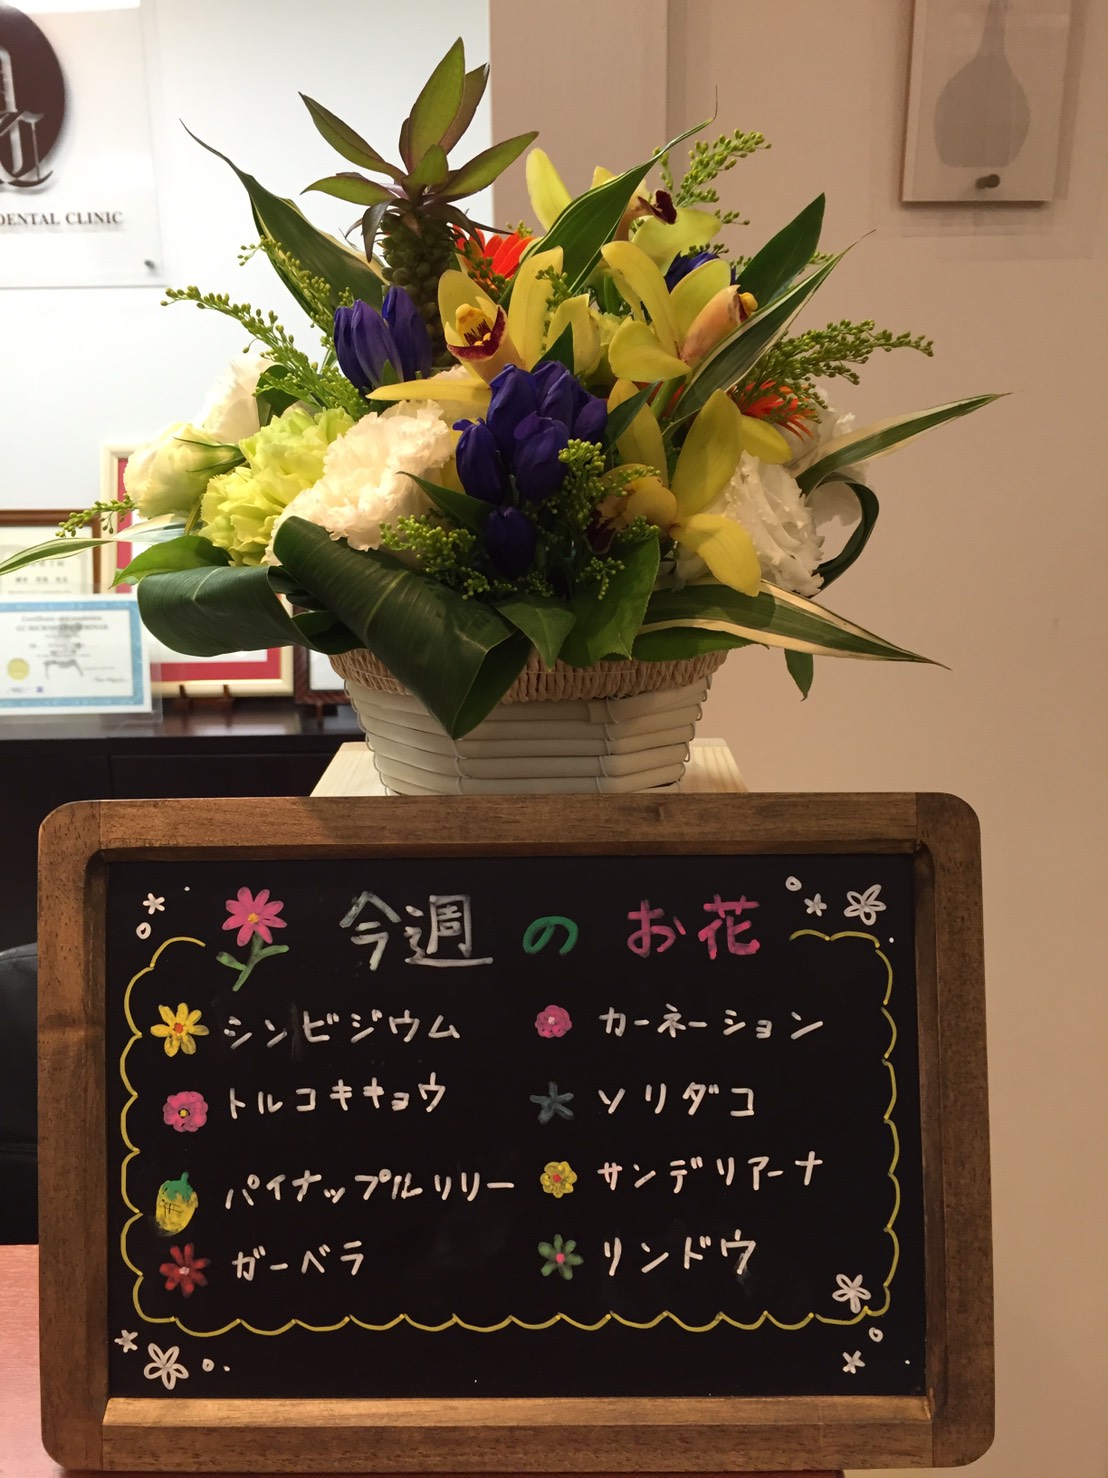 DENTAL CLINIC
Certificate of Completion
GC MICROSCOPE SEMINAR
今週のお花
シンビジウム
カーネーション
トルコキキョウ
ソリダコ
パイナップルリリー
サンデリアーナ
ガーベラ
リンドウ